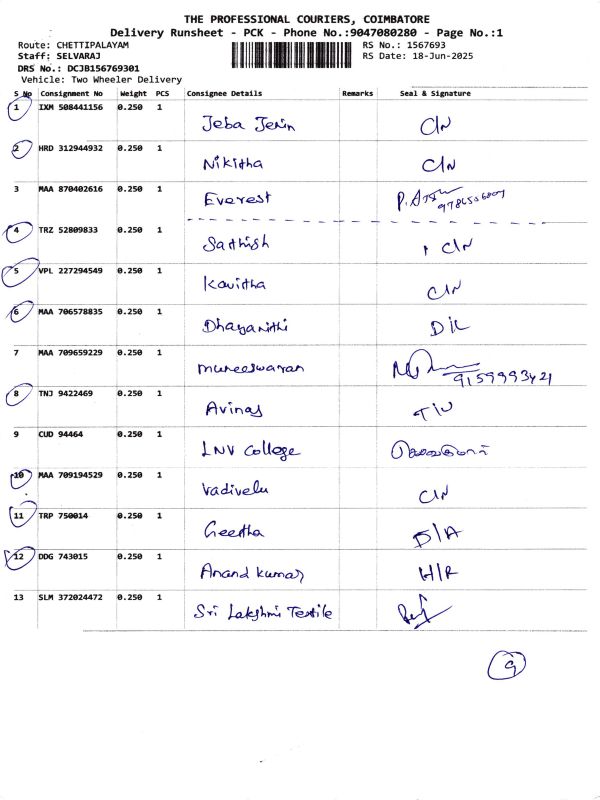 THE PROFESSIONAL COURIERS, COIMBATORE
Delivery Runsheet - PCK - Phone No.:9047080280 - Page No.:1
Route: CHETTIPALAYAM RS No.: 1567693
Staff: SELVARAJ RS Date: 18-Jun-2025
DRS No.: DCJB156769301
Vehicle: Two Wheeler Delivery
S No Consignment No Weight PCS Consignee Details Remarks Seal & Signature
1 IXM 508441156 0.250 1
Jeba Jenin C/N
2 HRD 312944932 0.250 1
Nikitha C/N
3 MAA 870402616 0.250 1
Everest
4 TRZ 52809833 0.250 1
Sathish C/N
5 VPL 227294549 0.250 1
Kavitha C/N
6 MAA 706578835 0.250 1
Dhayanithi D/L
7 MAA 709659229 0.250 1
muneeswaran
9159993421
8 TNJ 9422469 0.250 1
Avinas T/U
9 CUD 94464 0.250 1
LNV College
10 MAA 709194529 0.250 1
Vadivelu C/N
11 TRP 750014 0.250 1
Geetha D/A
12 DDG 743015 0.250 1
Anand kumar H/R
13 SLM 372024472 0.250 1
Sri Lakshmi Textile
9